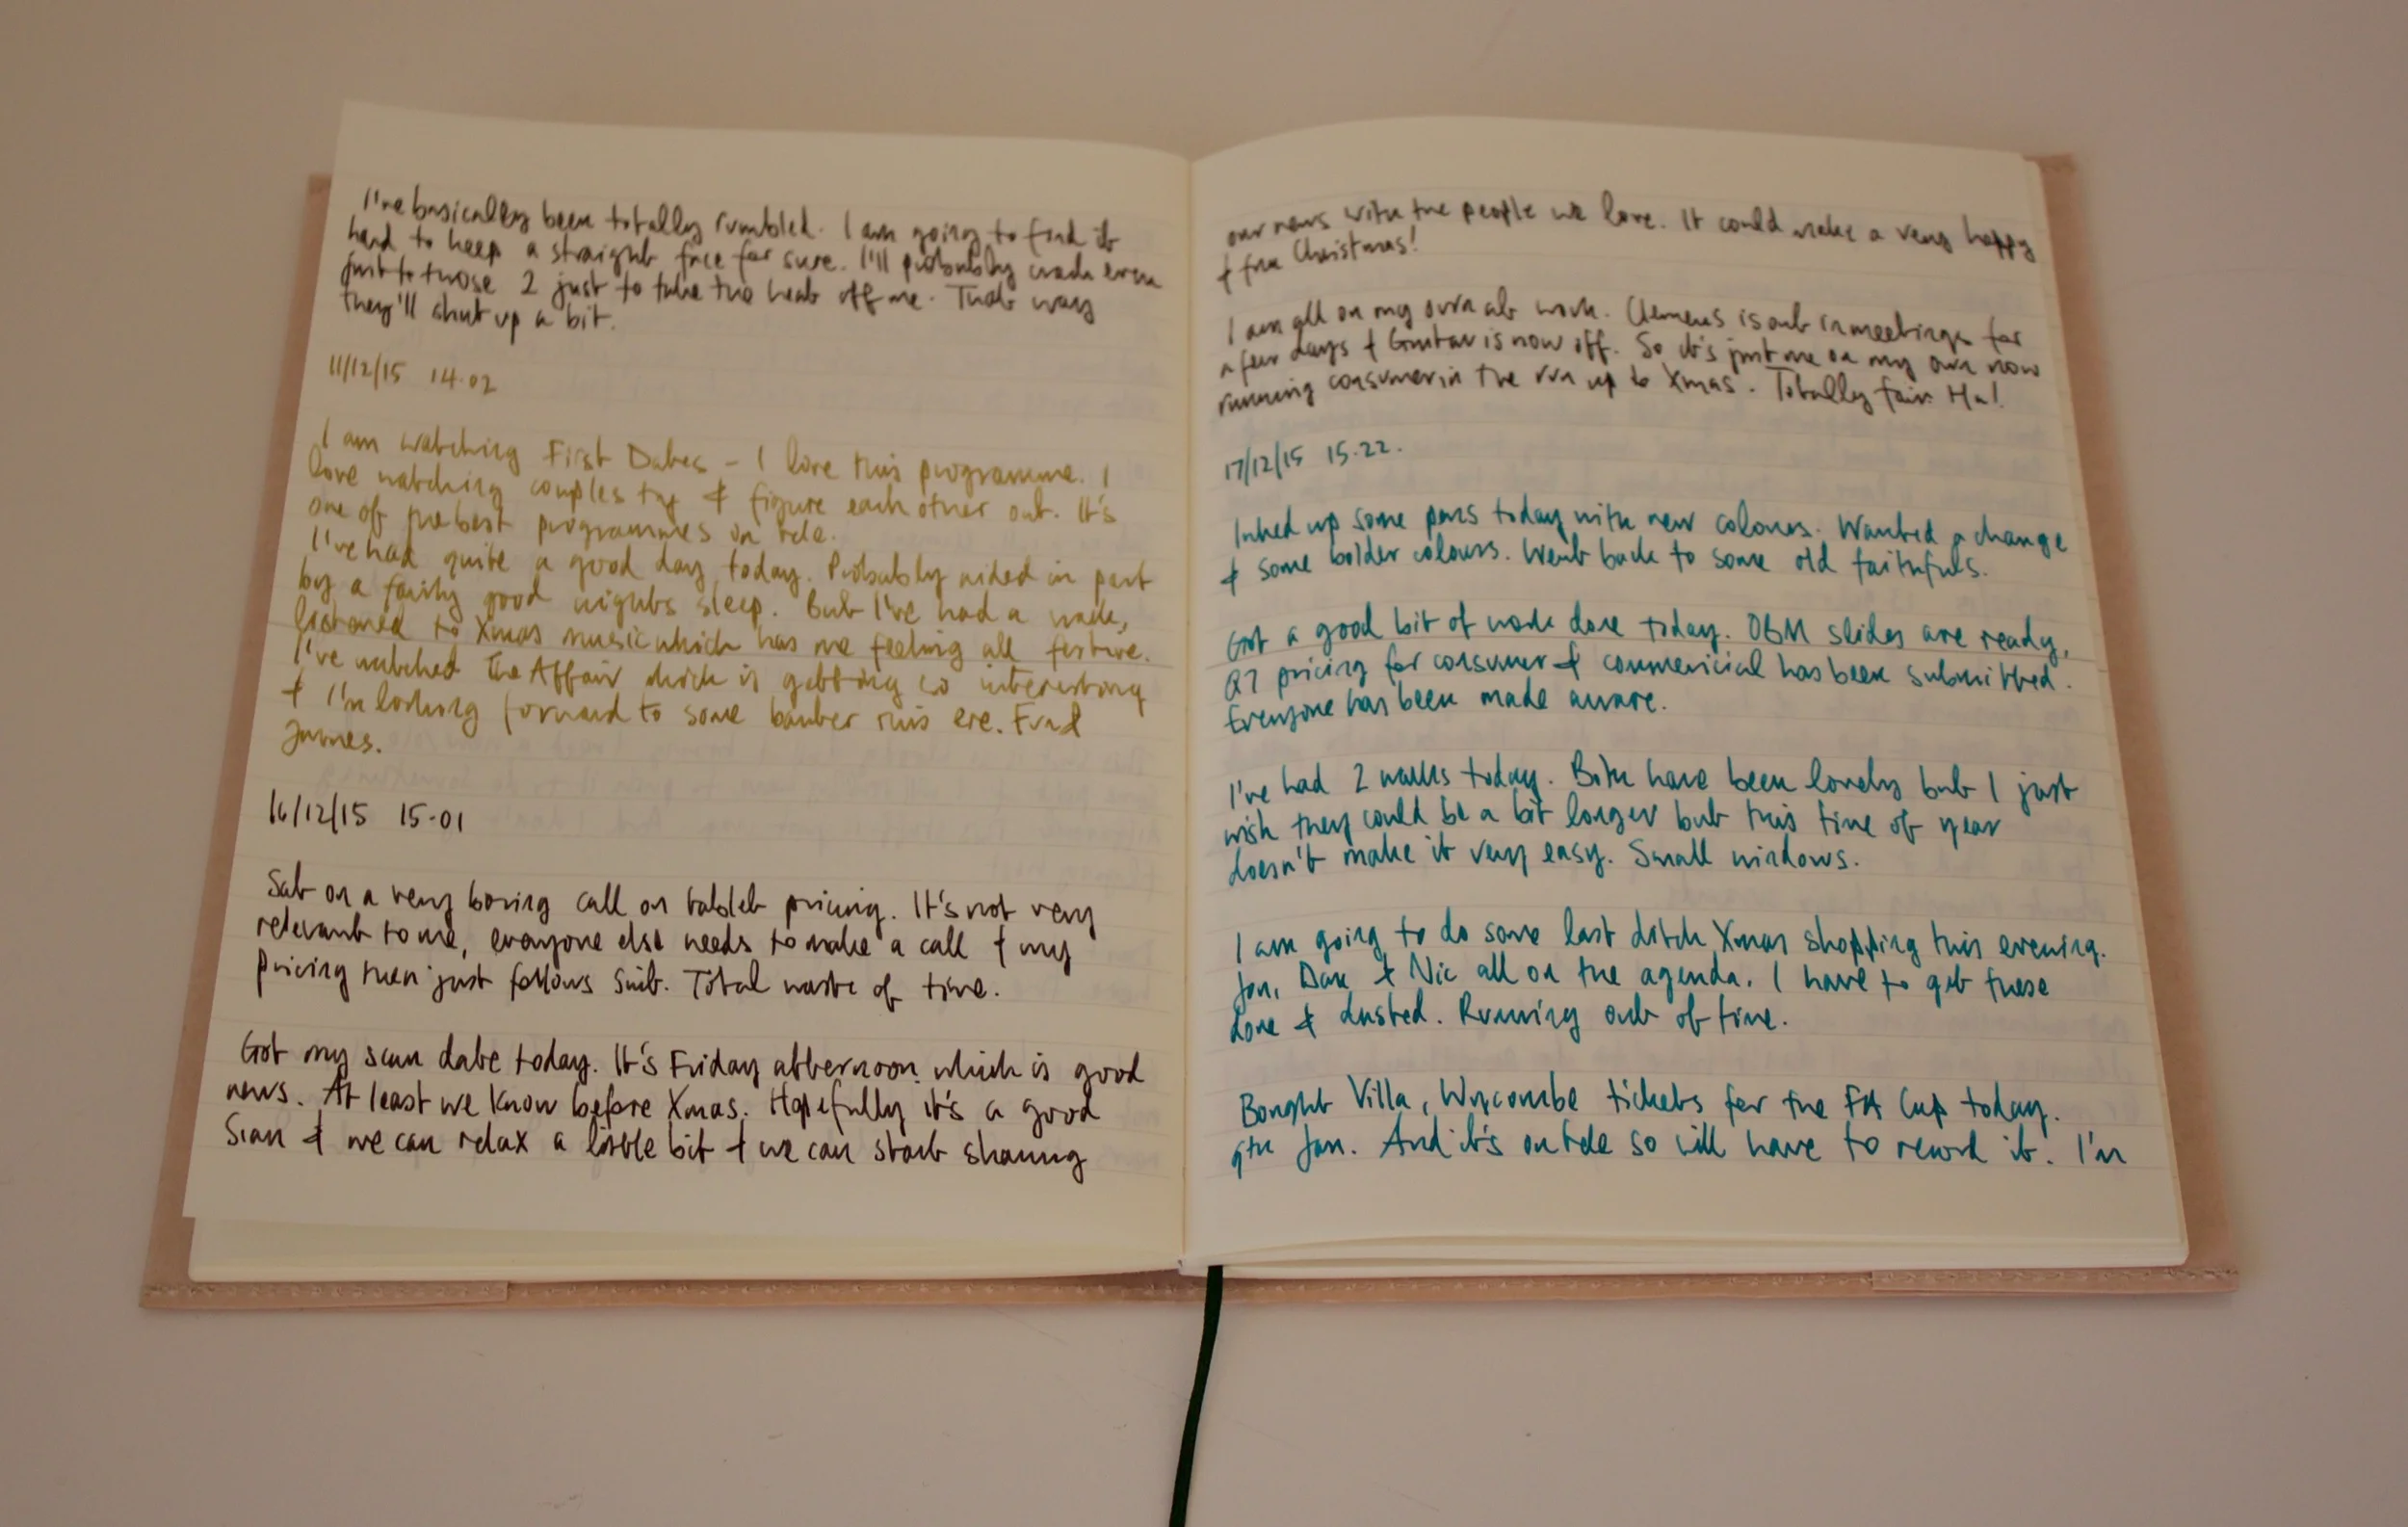 I've basically been totally rumbled. I am going to find it
hard to keep a straight face for sure. I'll probably crack even
just to those 2 just to take the heat off me. That way
they'll shut up a bit.
11/12/15 14.02
I am watching First Dates - I love this programme. I
love watching couples try & figure each other out. It's
one of the best programmes on tele.
I've had quite a good day today. Probably aided in part
by a fairly good nights sleep. But I've had a walk,
listened to Xmas music which has me feeling all festive.
I've watched The Affair which is getting so interesting
& I'm looking forward to some banter this eve. Fun &
James.
16/12/15 15.01
Sat on a very boring call on tablet pricing. It's not very
relevant to me, everyone else needs to make a call & my
pricing then just follows suit. Total waste of time.
Got my scan date today. It's Friday afternoon which is good
news. At least we know before Xmas. Hopefully it's a good
scan & we can relax a little bit & we can start sharing
our news with the people we love. It could make a very happy
& fun Christmas!
I am all on my own at work. Clemens is out in meetings for
a few days & Gustav is now off. So it's just me on my own now
running consumer in the run up to Xmas. Totally fair. Ha!
17/12/15 15.22.
Inked up some pens today with new colours. Wanted a change
& some bolder colours. Went back to some old faithfuls.
Got a good bit of work done today. OBM slides are ready,
pricing for consumer & commericial has been submitted.
Everyone has been made aware.
I've had 2 walks today. Both have been lovely but I just
wish they could be a bit longer but this time of year
doesn't make it very easy. Small windows.
I am going to do some last ditch Xmas shopping this evening.
Jon, Dan & Nic all on the agenda. I have to get these
done & dusted. Running out of time.
Bought Villa, Wycombe tickets for the FA Cup today.
9th Jan. And it's on tele so will have to record it. I'm